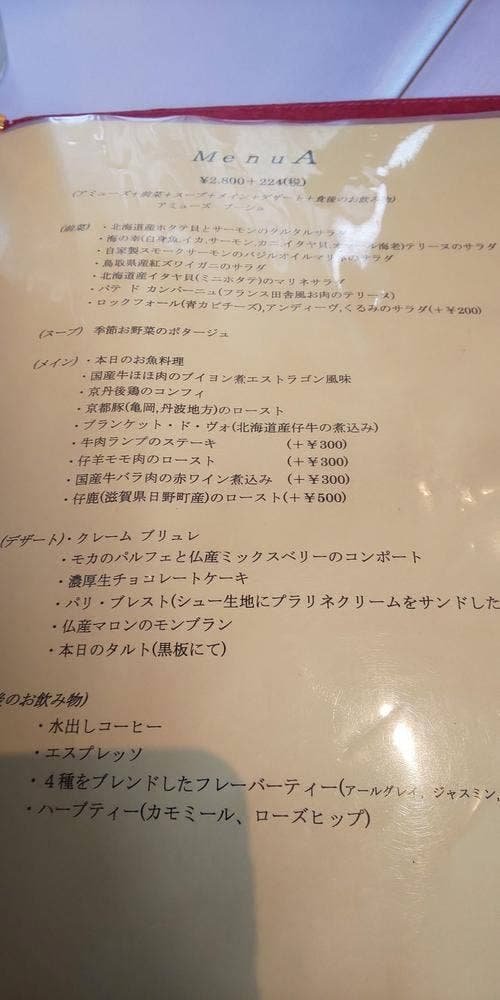 MenuA
¥2.800+224(税)
(アミューズ+前菜+スープ+メイン+デザート+食後のお飲み物)
アミューズ ブーシュ
(前菜) ・北海道産ホタテ貝とサーモンのタルタルサラダ
・海の幸(白身魚,イカ,サーモン,カニ,イタヤ貝,オマール海老)テリーヌのサラダ
・自家製スモークサーモンのバジルオイルマリネのサラダ
・鳥取県産紅ズワイガニのサラダ
・北海道産イタヤ貝(ミニホタテ)のマリネサラダ
・パテ ド カンパーニュ(フランス田舎風お肉のテリーヌ)
・ロックフォール(青カビチーズ),アンディーヴ,くるみのサラダ(+¥200)
(スープ) 季節お野菜のポタージュ
(メイン) ・本日のお魚料理
・国産牛ほほ肉のブイヨン煮エストラゴン風味
・京丹後鶏のコンフィ
・京都豚(亀岡,丹波地方)のロースト
・ブランケット・ド・ヴォ(北海道産仔牛の煮込み)
・牛肉ランプのステーキ (+¥300)
・仔羊モモ肉のロースト (+¥300)
・国産牛バラ肉の赤ワイン煮込み (+¥300)
・仔鹿(滋賀県日野町産)のロースト(+¥500)
(デザート)・クレーム ブリュレ
・モカのパルフェと仏産ミックスベリーのコンポート
・濃厚生チョコレートケーキ
・パリ・ブレスト(シュー生地にプラリネクリームをサンドした
・仏産マロンのモンブラン
・本日のタルト(黒板にて)
後のお飲み物)
・水出しコーヒー
・エスプレッソ
・4種をブレンドしたフレーバーティー(アールグレイ, ジャスミン,
・ハーブティー(カモミール、ローズヒップ)